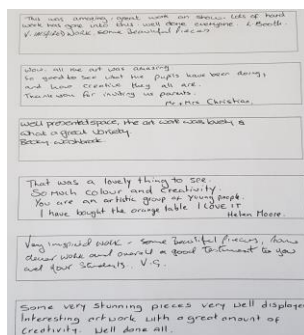 This was amazing, great work on show. Lots of hard
work has gone into this well done everyone. L Booth.
V. inspired work some beautiful pieces
Wow, all the art was amazing
So good to see what the pupils have been doing,
and how creative they all are.
Thank you for inviting us parents.
Mr & Mrs Christian.
Well presented space, the art work was lovely &
what a great variety
Becky
That was a lovely thing to see.
So much colour and creativity.
You are an artistic group of young people.
I have bought the orange table I LOVE IT
Helen Moore.
Very inspired work - some beautiful pieces, some
clever work and overall a good testament to you
and your students. V.G.
Some very stunning pieces very well displayed
Interesting art work with a great amount of
creativity. Well done all.